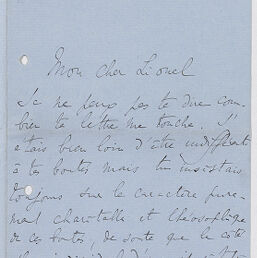 Mon cher Lionel
Je ne peux pas te dire com-
bien ta lettre me touche. J'
étais bien loin d'être indifférent
à tes boites mais tu insistais
toujours sur le caractère pure-
ment charitable et théosophique
de ces boites, de sorte que le côté